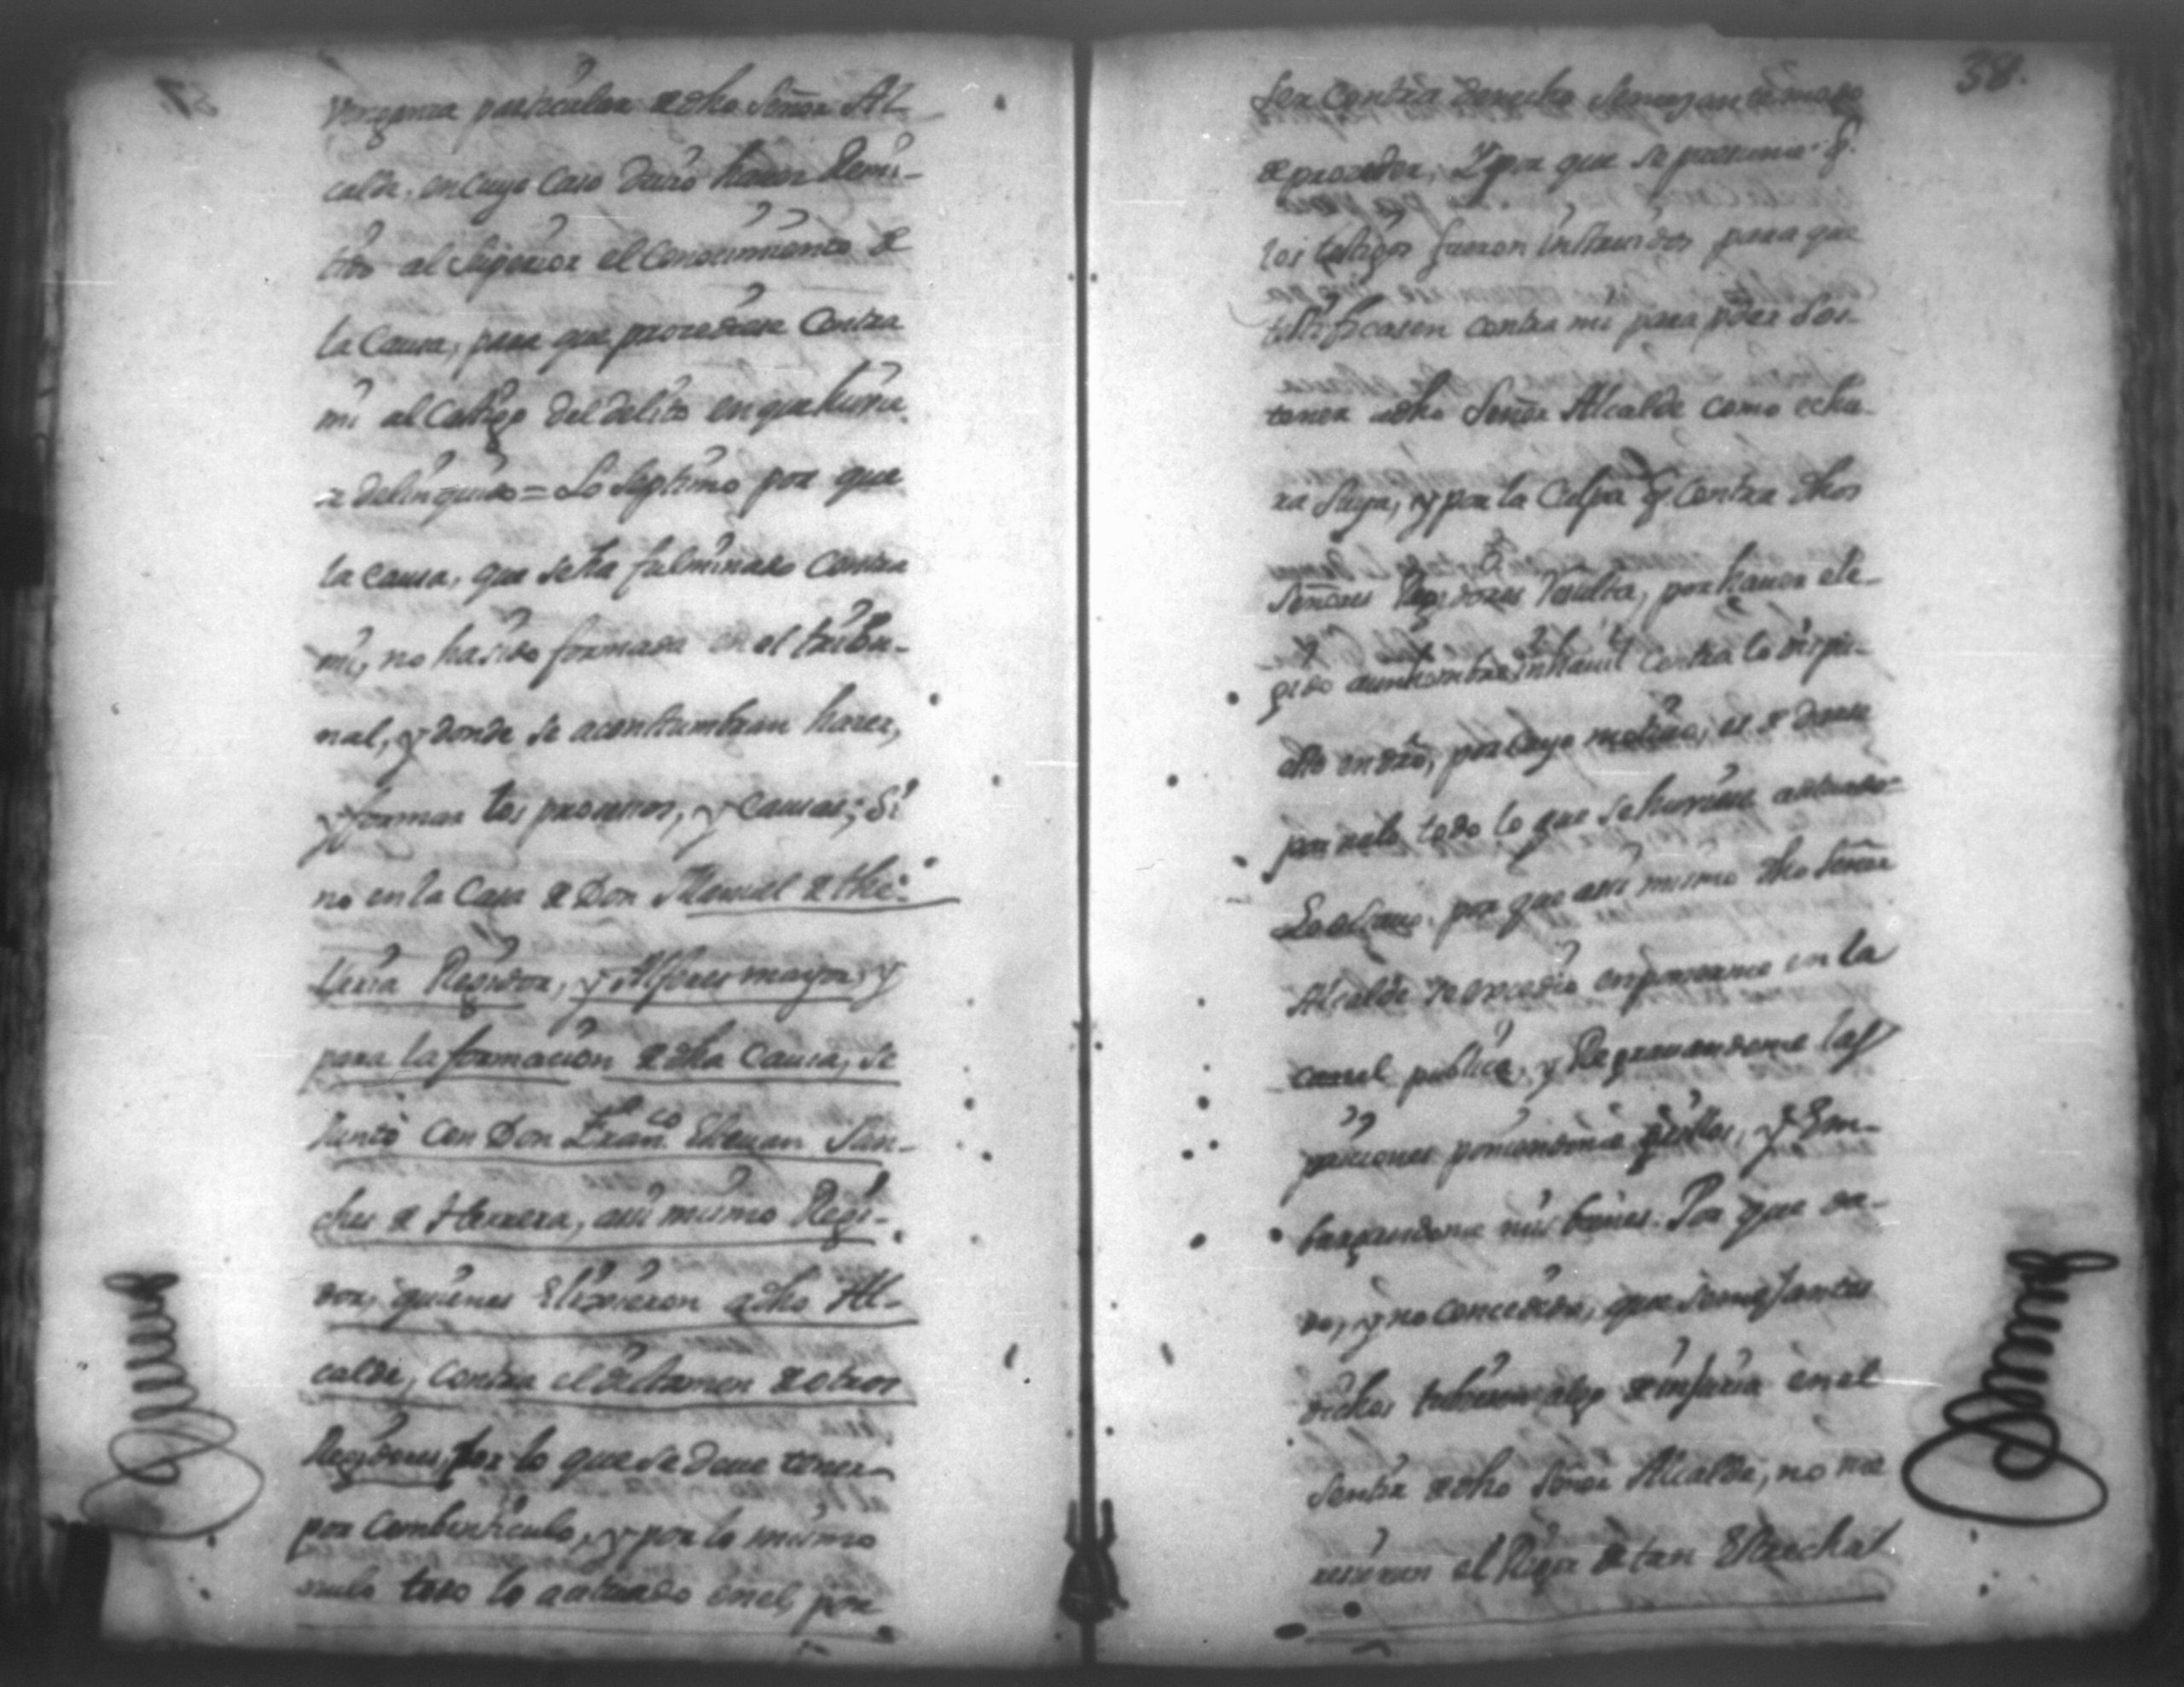 Venganza particular de dho Señor Al-
calde. en cuyo Caso deuio hauer Remi-
tido al Superior el Conocimiento de
la Causa, para que procediese Contra
mi al Castigo del delito en que huvie-
se delinquido = Lo septimo por que
la causa, que se ha fulminado Contra
mi, no ha sido formada en el tribu-
nal, y donde se acostumbran hazer,
y formar los procesos, y causas; Si
no en la Casa de Don Manuel de
Regidor, y Alferes mayor, y
para la formacion de dha Causa, se
Junto con Don Franco. Esteuan San-
ches de Herrera, assi mismo Regi-
dor, quienes Elixieron a dho Al-
calde, contra el dictamen de otros
Regidores, por lo que se deue tener
por Combenticulo, y por lo mismo
nulo todo lo actuado en el, por
38.
Ser Contra derecho Semejante modo
de proceder; Y por que se presume q.
los testigos fueron instruidos para que
testificasen contra mi para poder Sos-
tener a dho Señor Alcalde como echu-
ra Suya, y por la Culpa q. contra dhos
Señores Regidores Resulta, por hauer ele-
gido a un hombre inhauil contra lo dispu-
esto en dro, por cuyo motiuo, es de darse
por nulo todo lo que se huviese actuado =
Lo octauo. por que assi mismo dho Señor
Alcalde en ponerme en la
carcel publica, y Regrauandome las
priciones poniendome grillos, y Em-
bargandome mis bienes. Por que da-
do, y no concedido, que semejantes
dichos tubieran algo de injuria en el
Sentir de dho Señor Alcalde, no me
el Rigor de tan Estrecha